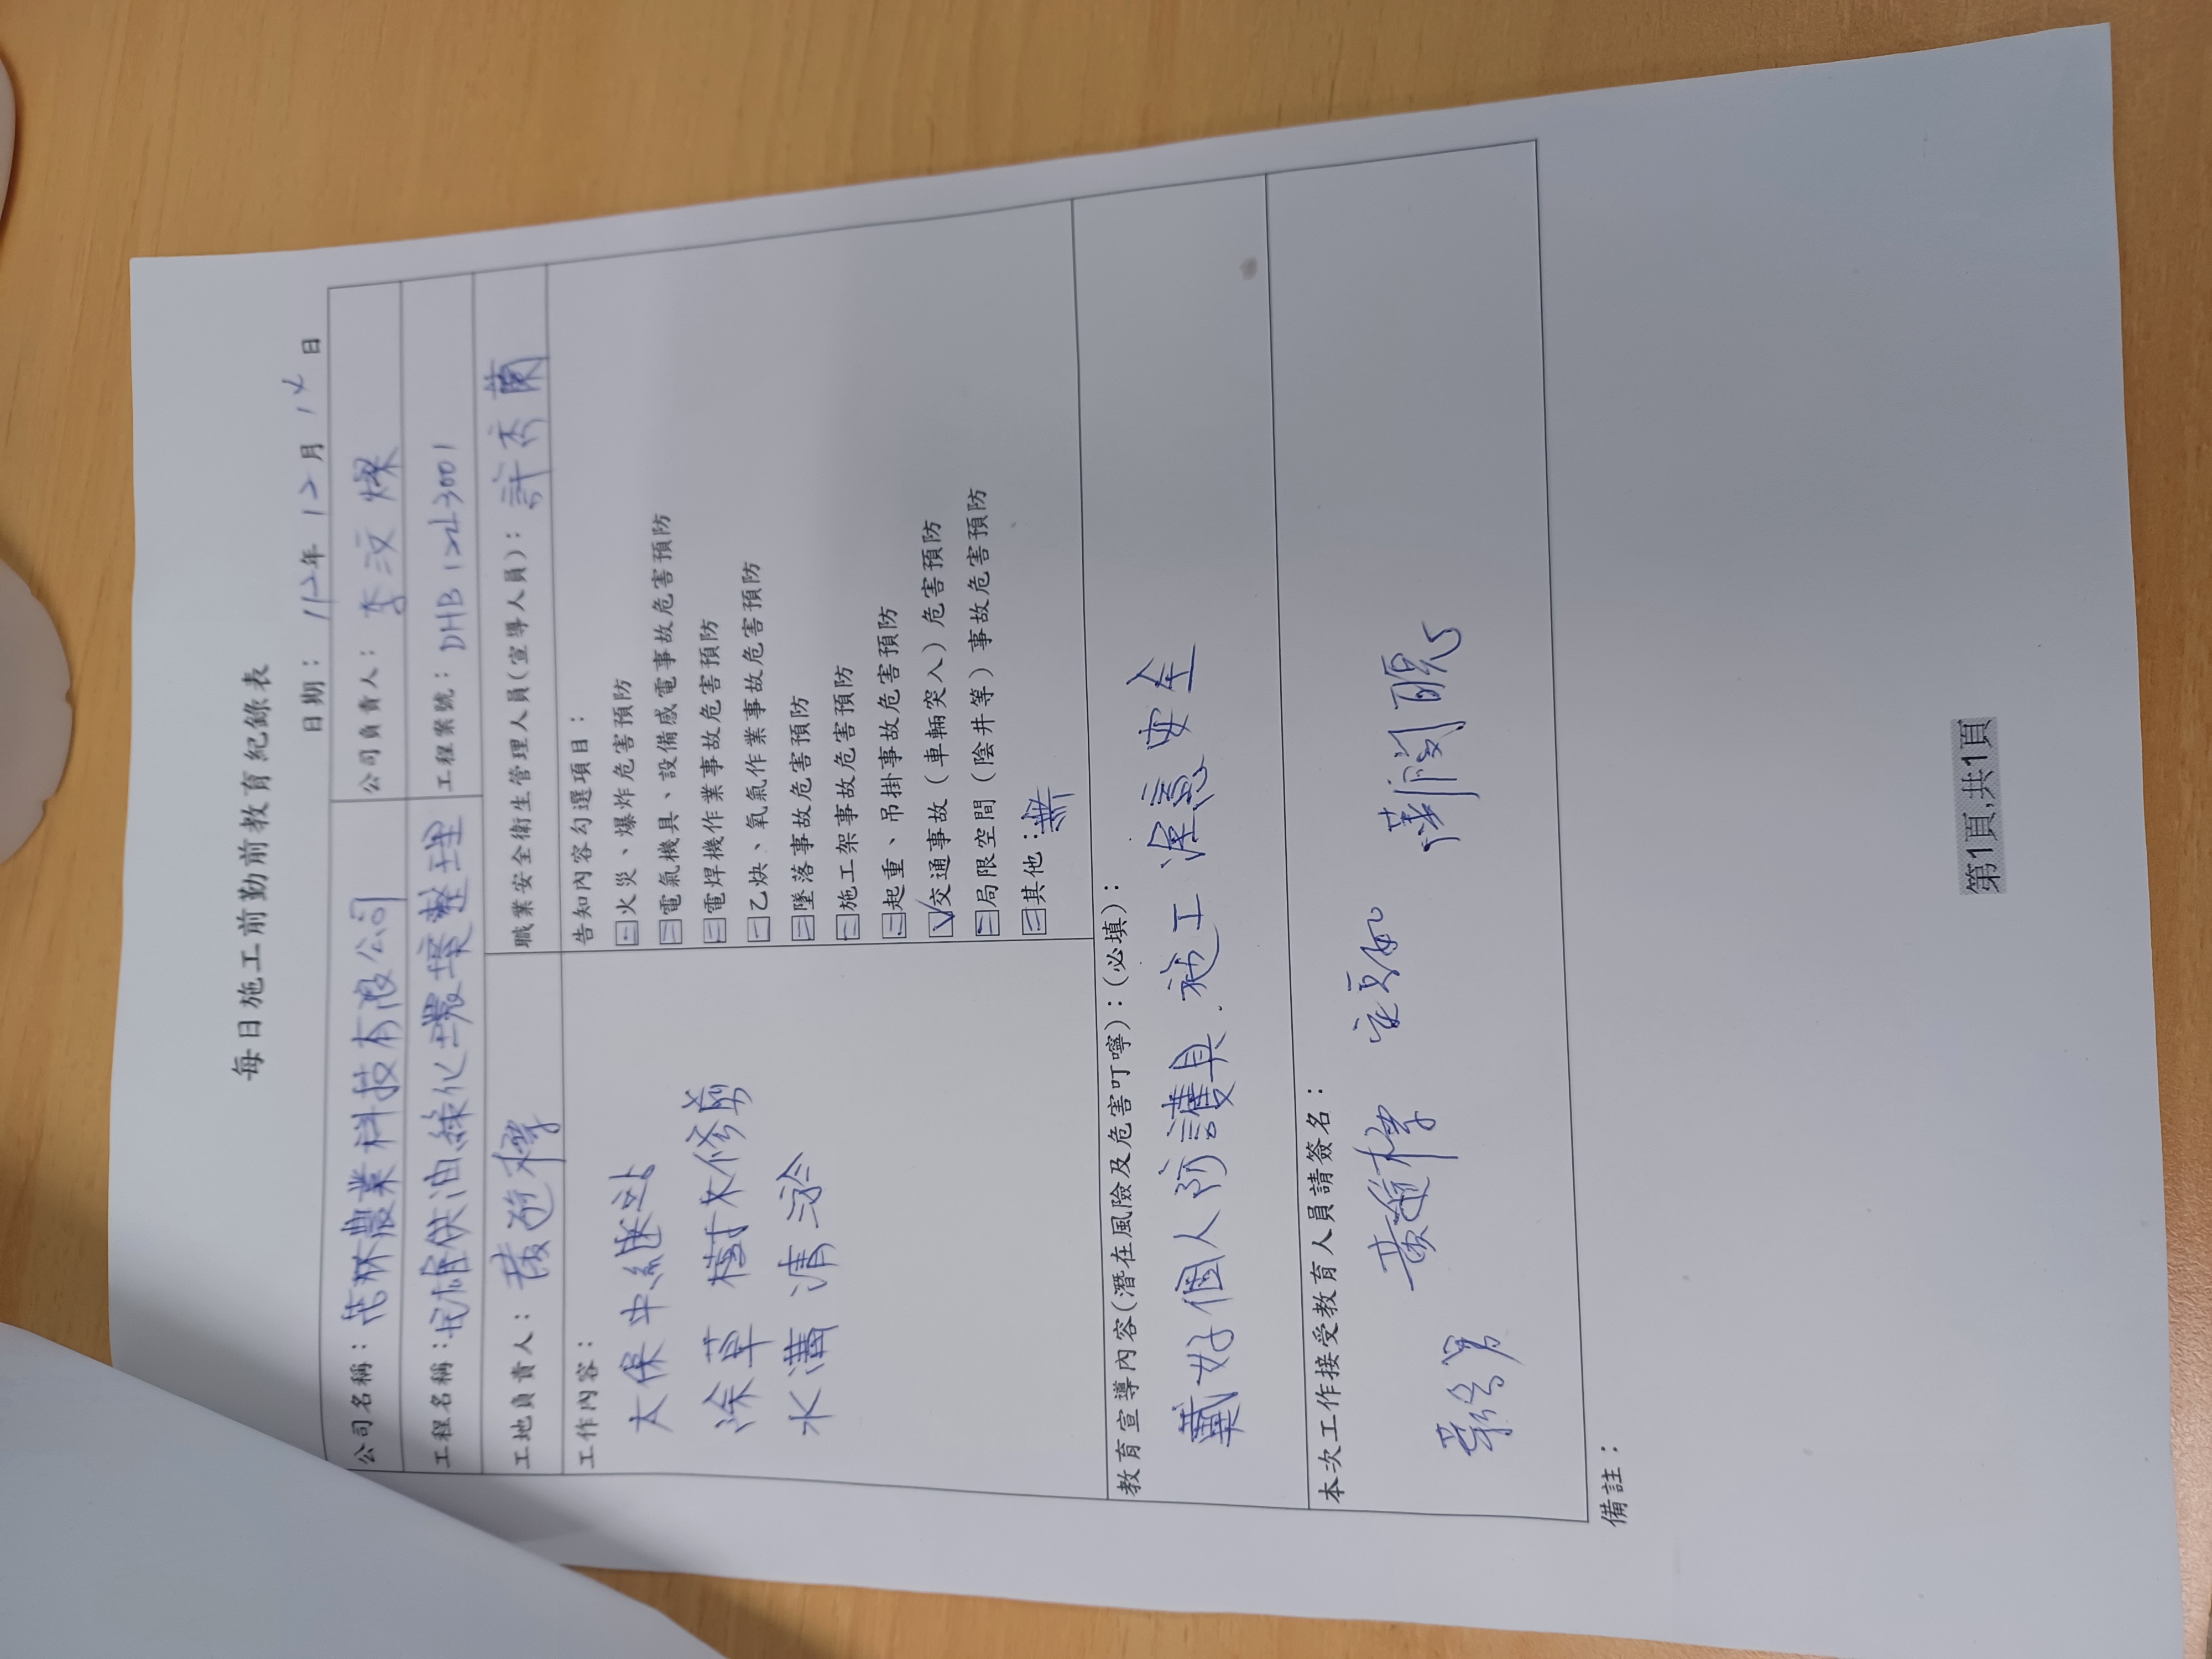 每日施工前勤前教育紀錄表
日期： 112年 12月 14日
公司名稱：林農業科技有限公司
公司負責人：李汶燦
工程名稱：民雄供油綠化環境整理
工程案號：DHB1223001
工地負責人：黃進標
職業安全衛生管理人員(宣導人員)：許秀蘭
工作內容：
太保中繼站
除草 樹木修剪
水溝清淤
告知內容勾選項目：
火災、爆炸危害預防
電氣機具、設備感電事故危害預防
電焊機作業事故危害預防
乙炔、氧氣作業事故危害預防
墜落事故危害預防
施工架事故危害預防
起重、吊掛事故危害預防
交通事故（車輛突入）危害預防
局限空間（陰井等）事故危害預防
其他：無
教育宣導內容(潛在風險及危害叮嚀)：(必填)：
戴好個人防護具.施工注意安全
本次工作接受教育人員請簽名：
黃進標
備註：
第1頁,共1頁